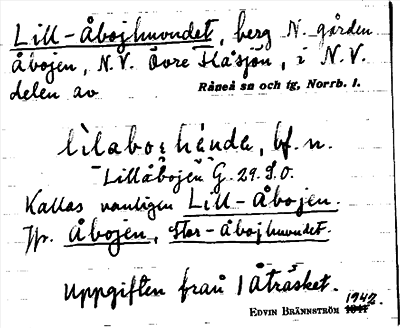 Lill-Åbojhuvudet, berg N. gården
Åbojen, N.V. Övre Flåsjön, i N.V.
delen av Råneå sn och tg, Norrb. l.
bf. n.
Lillåbojen G. 29.S.O.
Kallas vanligen Lill-Åbojen.
Jfr. Åbojen, Stor-Åbojhuvudet.
Uppgiften från 1 Åträsket.
1942.
EDVIN BRÄNNSTRÖM 1941